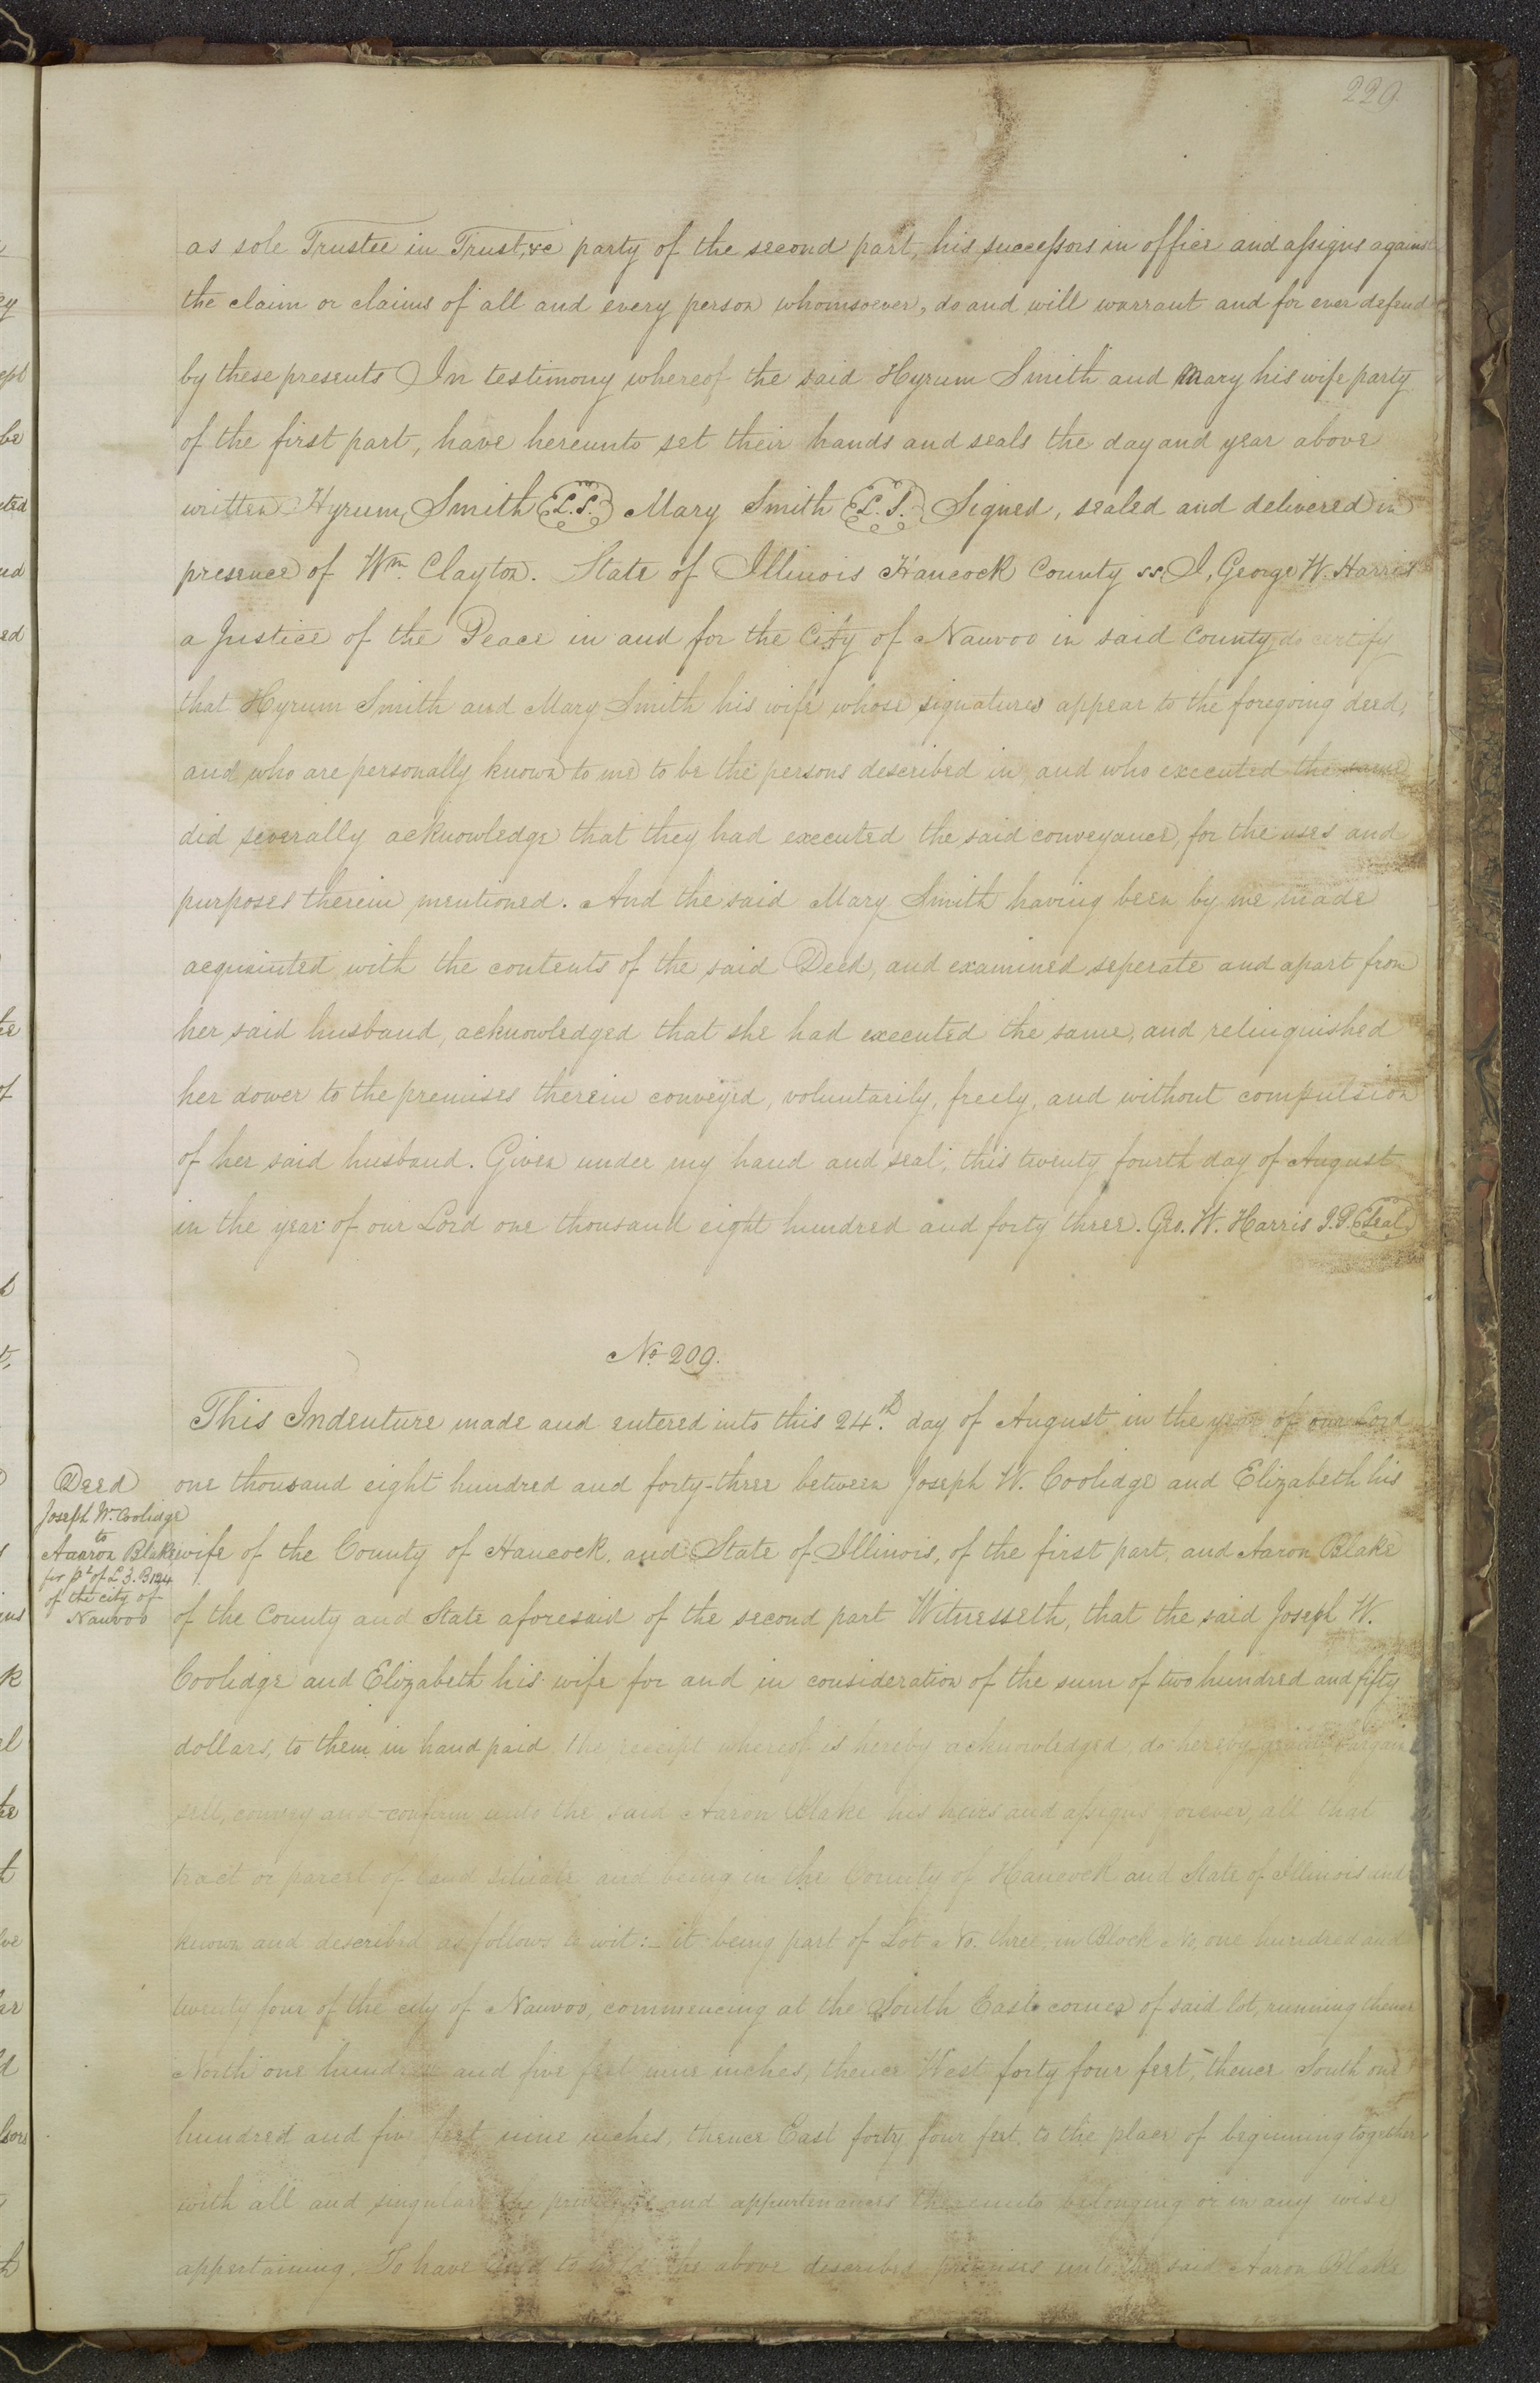 229
as sole Trustee in Trust, &c party of the second part, his successors in office and assigns against
the claim or claims of all and every person whomsoever, do and will warrant and for ever defend
by these presents In testimony whereof the said Hyrum Smith and Mary his wife party
of the first part, have hereunto set their hands and seals the day and year above
written Hyrum Smith L.S. Mary Smith L.S. Signed, sealed and delivered in
presence of Wm. Clayton. State of Illinois Hancock County ss. I, George W. Harris
a Justice of the Peace in and for the City of Nauvoo in said County do certify
that Hyrum Smith and Mary Smith his wife whose signatures appear to the foregoing deed,
and who are personally known to me to be the persons described in, and who executed the same
did severally acknowledge that they had executed the said conveyance, for the uses and
purposes therein mentioned. And the said Mary Smith having been by me made
acquainted with the contents of the said Deed, and examined seperate and apart from
her said husband, acknowledged that she had executed the same, and relinquished
her dower to the premises therein conveyed, voluntarily, freely, and without compulsion
of her said husband. Given under my hand and seal, this twenty fourth day of August
in the year of our Lord one thousand eight hundred and forty three. Geo. W. Harris J.P. Seal
No. 209.
This Indenture made and entered into this 24th. day of August in the year of our Lord
one thousand eight hundred and forty-three between Joseph W. Coolidge and Elizabeth his
wife of the County of Hancock, and State of Illinois, of the first part, and Aaron Blake
of the County and State aforesaid of the second part Witnesseth, that the said Joseph W.
Coolidge and Elizabeth his wife for and in consideration of the sum of two hundred and fifty
dollars, to them in hand paid, the receipt whereof is hereby acknowledged, do hereby grant, bargain
sell, convey and confirm unto the said Aaron Blake his heirs and assigns forever, all that
tract or parcel of land situate and being in the County of Hancock and State of Illinois and
known and described as follows to wit:- it being part of Lot No. three, in Block No, one hundred and
twenty four of the city of Nauvoo, commencing at the South East corner of said lot, running thence
North one hundred and five feet nine inches, thence West forty four feet, thence South one
hundred and five feet nine inches, thence East forty four feet, to the place of beginning together
with all and singular the privileges and appurtenances thereunto belonging or in any wise
appertaining. To have and to hold the above described premises unto the said Aaron Blake
Deed
Joseph W. Coolidge
to
Aaaron Blake
for pt of L 3. B 124
of the city of
Nauvoo